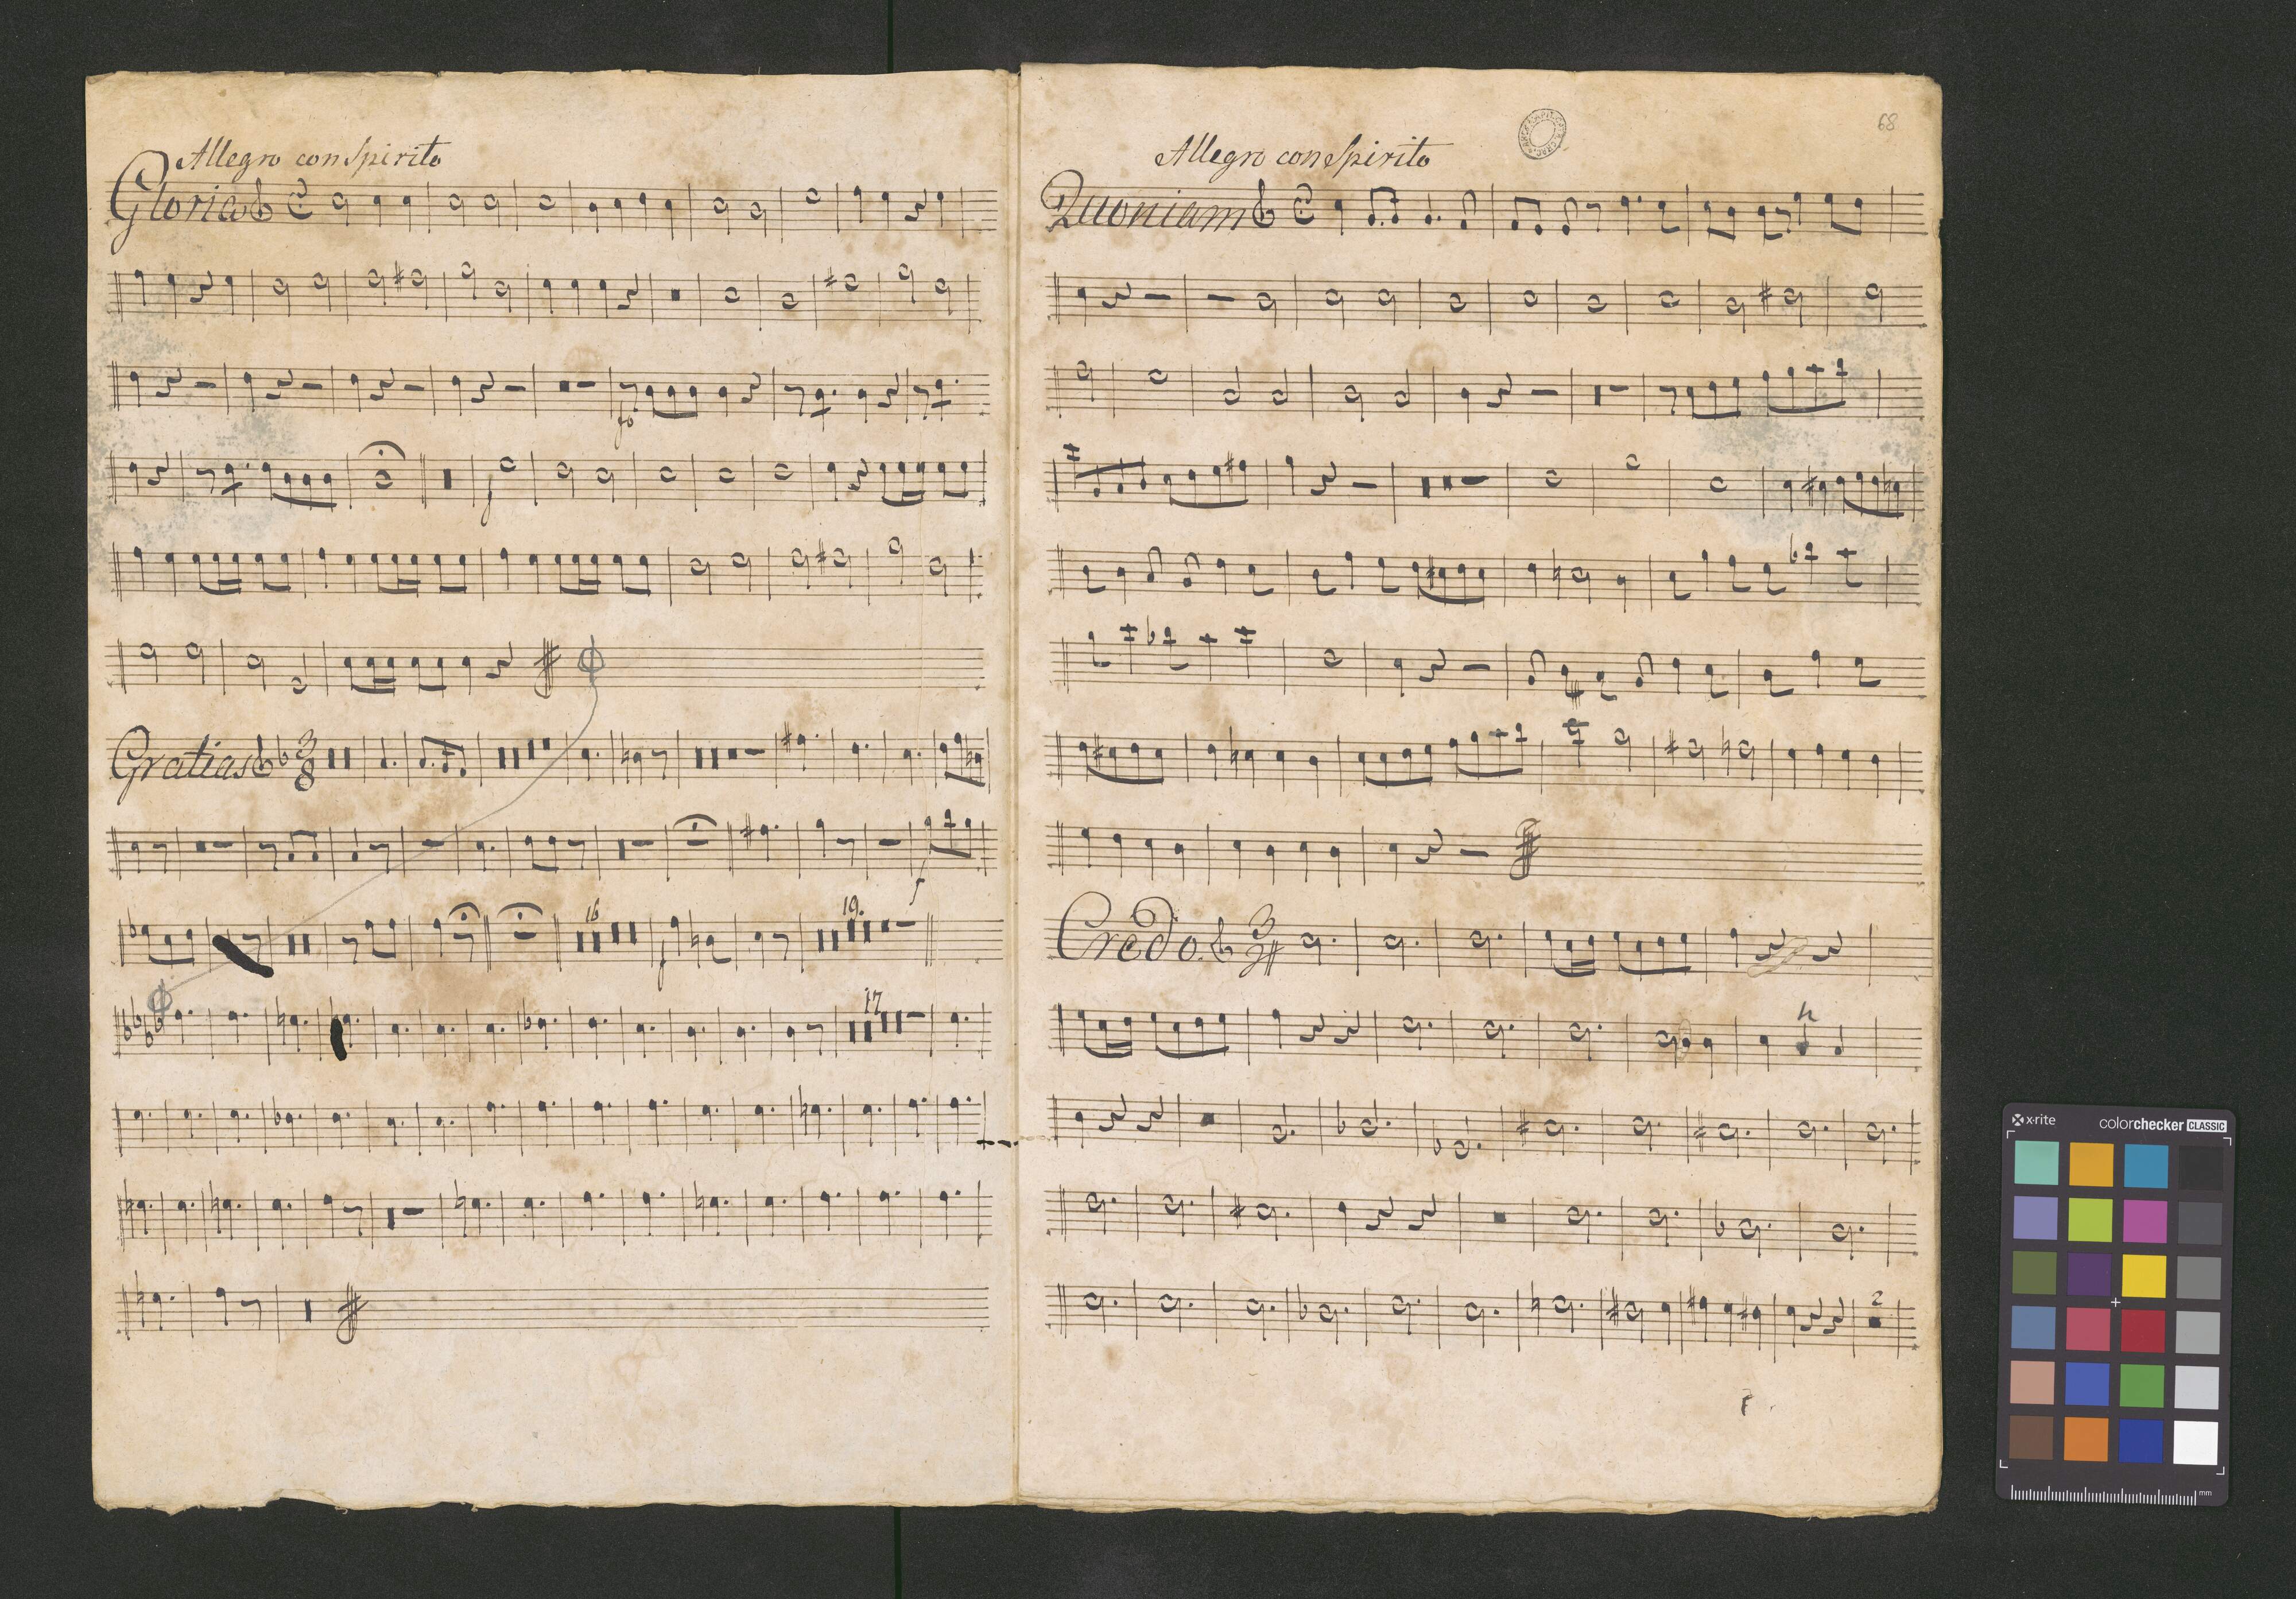 Allegro con Spirito
Gloria
fo
f
Gratias 3 8
f
16 19.
f
17
68
Allegro con Spirito
Quoniam
Credo. 3
2
x-rite colorchecker CLASSIC
mm